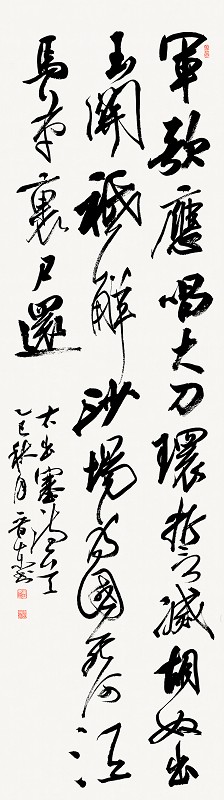 軍歌應唱大刀環誓滅胡奴出
玉關祗解沙場為國死何須
馬革裹尸還
出塞詩
乙巳秋月